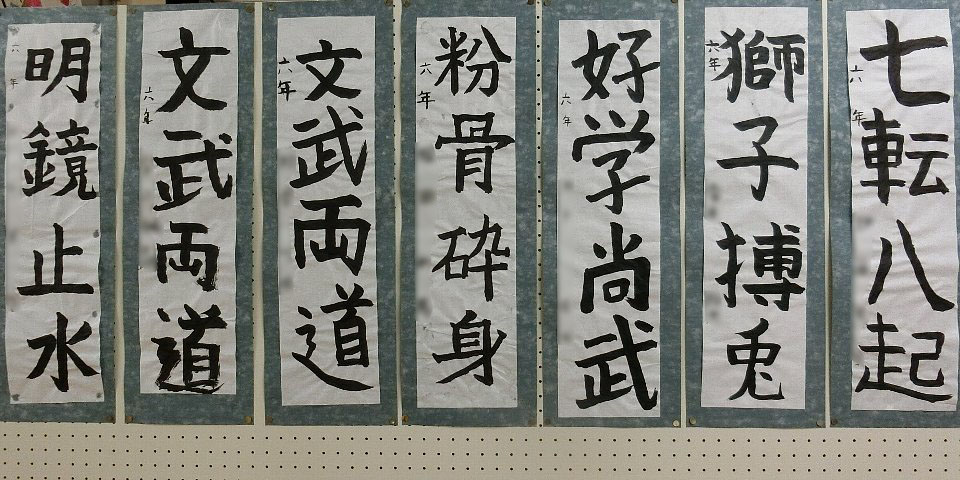 七転八起
六年
獅子搏兎
六年
好学尚武
六年
粉骨砕身
六年
文武両道
六年
文武両道
六年
明鏡止水
六年